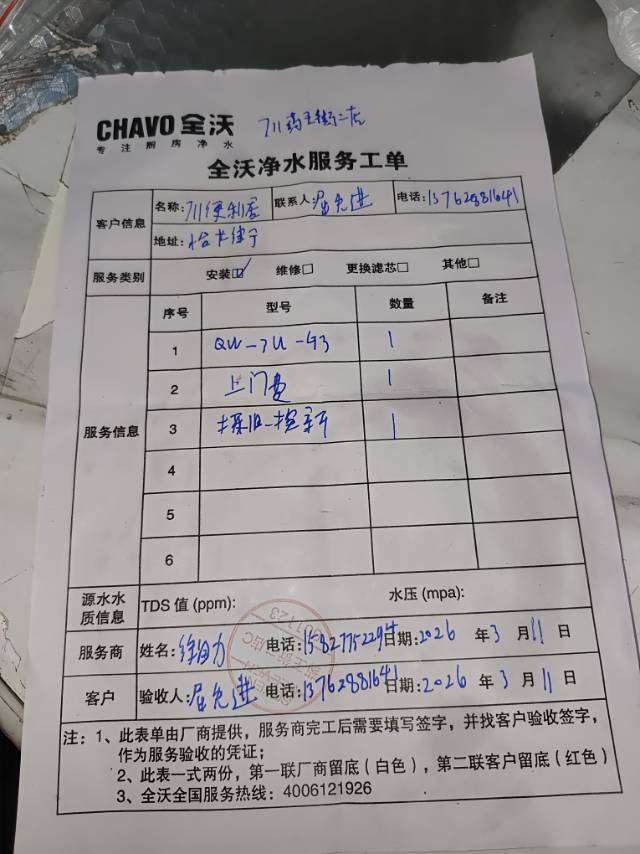 CHAVO 全沃
专注厨房净水
711药王街二店
全沃净水服务工单
客户信息 名称:711便利店 联系人:屈先进 电话:13762881641
地址:
服务类别 安装☑ 维修□ 更换滤芯□ 其他□
服务信息 序号 型号 数量 备注
1 QW-7U-43 1
2 上门费 1
3 拆旧-换新 1
4
5
6
源水水质信息 TDS 值 (ppm): 水压 (mpa):
服务商 姓名: 电话:15827752294 日期:2026 年 3 月 11 日
客户 验收人:屈先进 电话:13762881641 日期:2026 年 3 月 11 日
注:1、此表单由厂商提供,服务商完工后需要填写签字,并找客户验收签字,
作为服务验收的凭证;
2、此表一式两份,第一联厂商留底(白色),第二联客户留底(红色)
3、全沃全国服务热线:4006121926